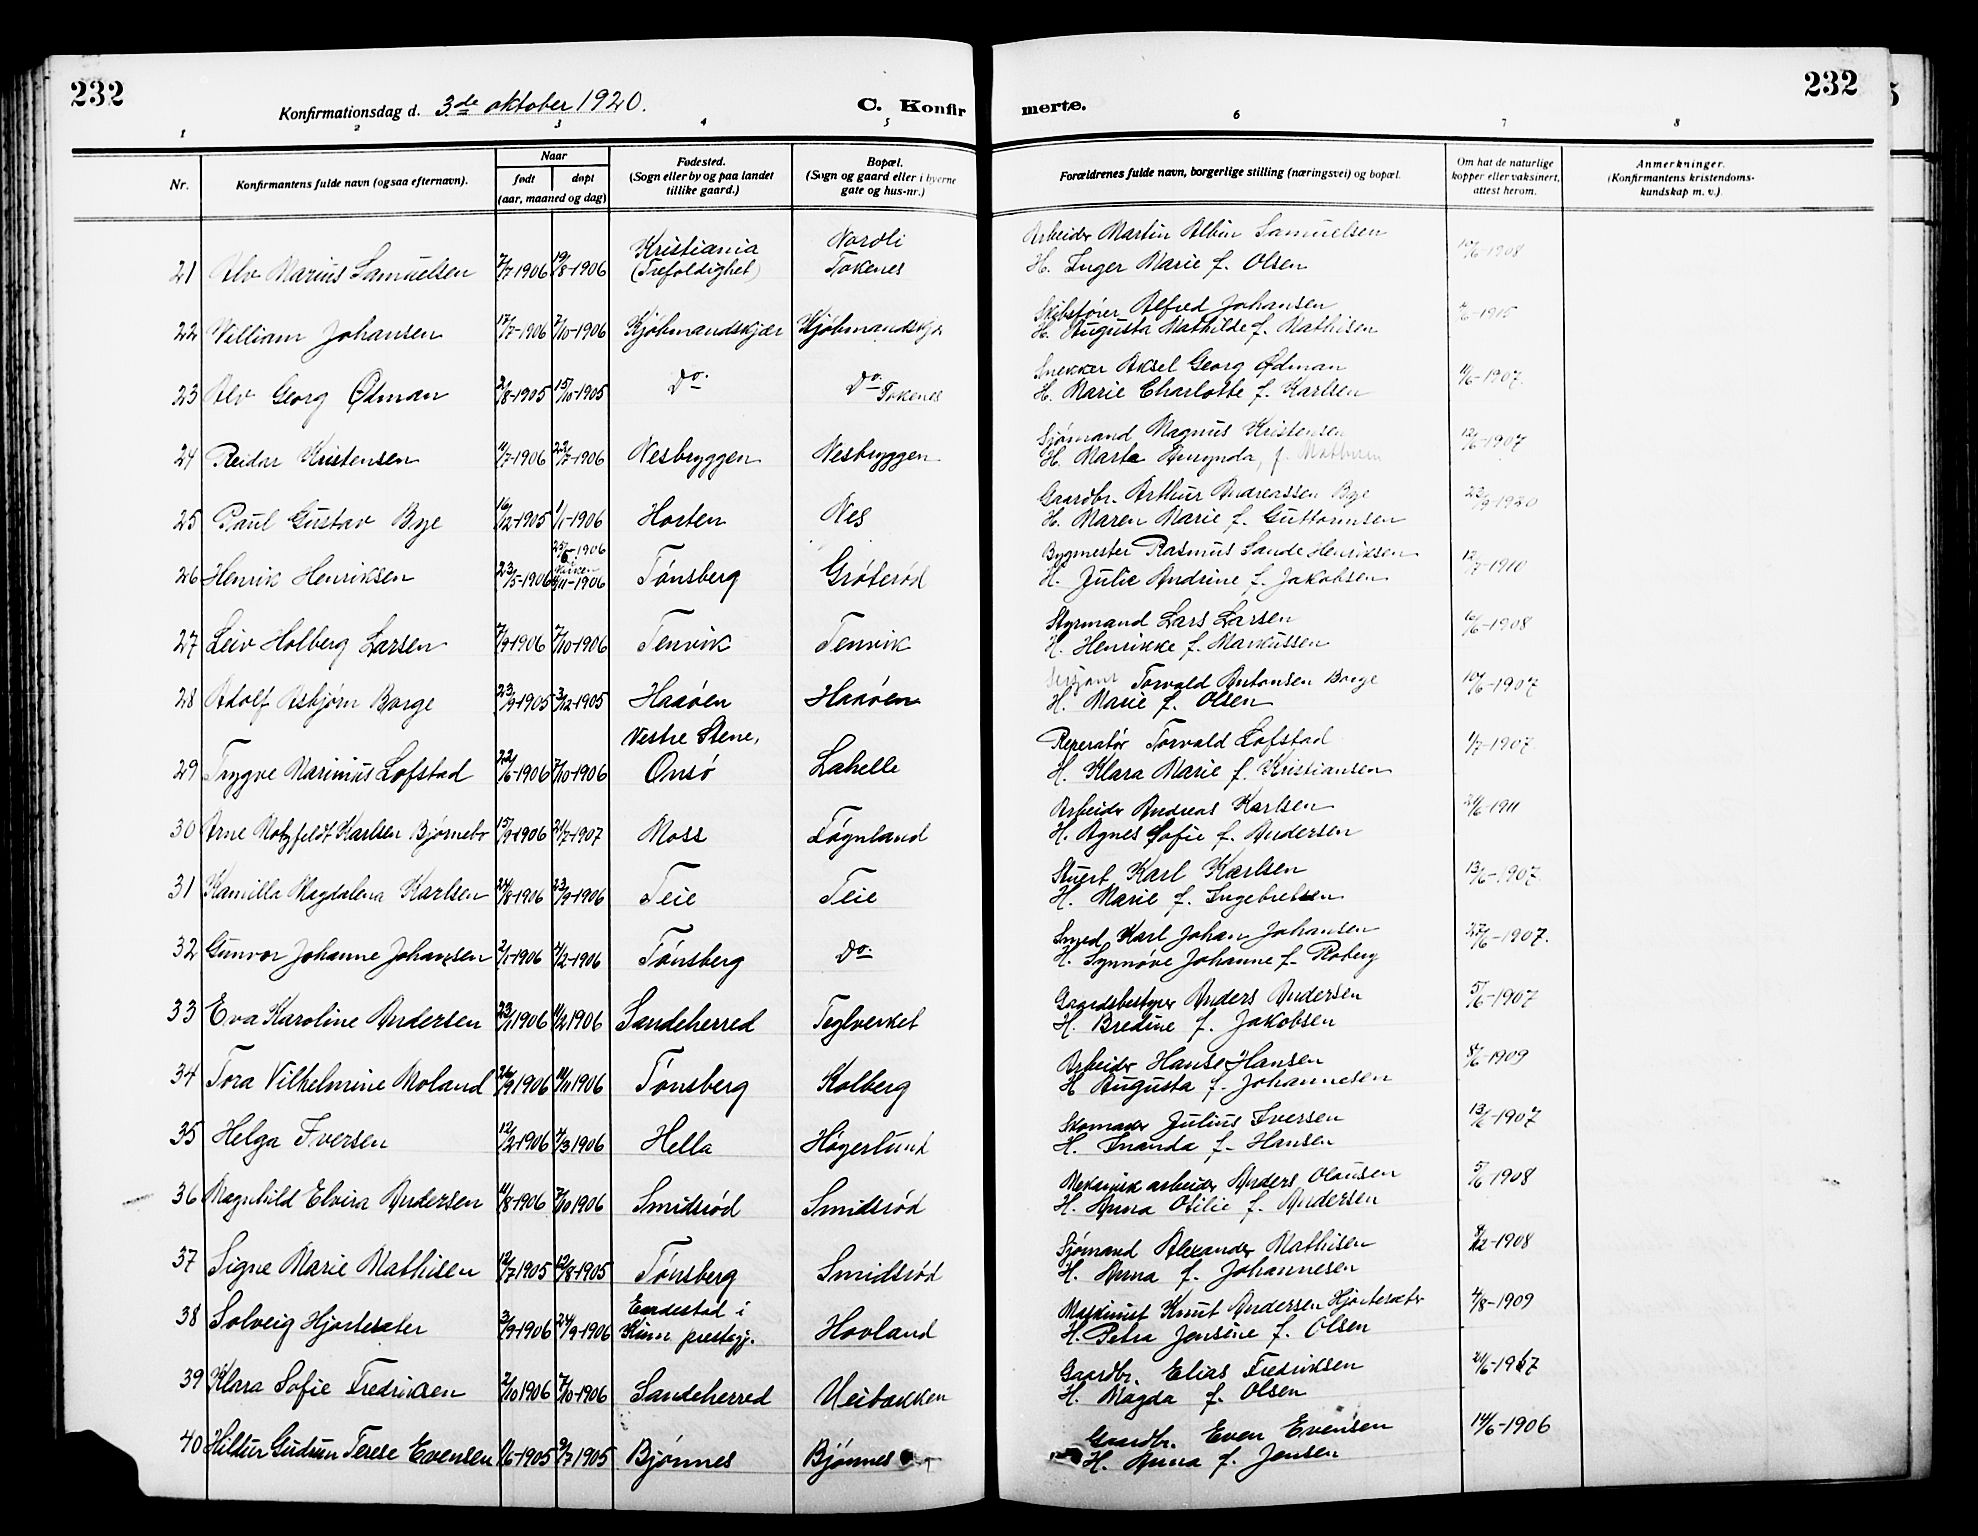 232
Konfirmationsdag d. 3de oktober 1920.
C. Konfirmerte.
232
1 2 3 4 5 6 7 8
Nr. Konfirmantens fulde navn (ogsaa efternavn). Naar født døpt (aar, maaned og dag) Fødested. (Sogn eller by og paa landet tillike gaard.) Bopæl. (Sogn og gaard eller i byerne gate og hus-nr.) Forældrenes fulde navn, borgerlige stilling (næringsvei) og bopæl. Om hat de naturlige kopper eller vaksinert, attest herom. Anmerkninger. (Konfirmantens kristendomskundskap m. v.)
21 Alv Marius Samuelsen 2/7 1906 19/8-1906 Kristiania (Trefoldighet) Nordli Tokenes Arbeider Martin Albin Samuelsen
H. Inger Marie f. Olsen -1908
22 William Johansen 17/7-1906 7/10-1906 Kjøbmandskjær Kjøbmandskjær Skibsfører Alfred Johansen
H. Augusta Mathilde f. Mathisen
23 Alv Georg Ødman 2/8-1905 15/10-1905 Do. Do. Tokenes Snekker Aksel Georg Ødman
H. Marie Charlotte f. Karlsen 11/6-1907
24 Reidar Kristensen 11/7-1906 22/7-1906 Nesbryggen Nesbryggen Sjømand Magnus Kristensen
H. Marta f. 12/6-1907
25 Paul Gustav Bye 16/12-1905 1/1-1906 Horten Nes Gaardbr. Arthur Andreassen Bye
H. Maren Marie f. Guttormsen 22/9-1920
26 Henrik Henriksen 23/5-1906 25/6-1906 kirken /11-1906 Tønsberg Grøterød Bygmester Rasmus Sande Henriksen
H. Julie Andrine f. Jakobsen 12/7-1910
27 Leiv Holberg Larsen 7/9-1906 7/10-1906 Tenvik Tenvik Styrmand Lars Larsen
H. Henrikke f. Markussen 16/6-1908
28 Adolf Asbjørn Borge 23/9-1905 3/12-1905 Haaøen Haaøen Torvald Antonsen Borge
H. Marie f. Olsen 10/6-1907
29 Trygve Marinius Lofstad 22/6-1906 7/10-1906 Vestre Stene, Onsø Lahelle Reperatør Torvald Lofstad
H. Klara Marie f. Kristiansen 1/7-1907
30 Arne Motzfeldt Karlsen Bjørnebo 15/9-1906 21/7-1907 Moss Føynland Arbeider Andreas Karlsen
H. Agnes Sofie f. Andersen 24/6-1911
31 Kamilla Magdalena Karlsen 24/8-1906 23/9-1906 Teie Teie Stuert Karl Karlsen
H. Marie f. Ingebretsen 13/6-1907
32 Gunvor Johanne Johansen 2/1-1906 4/2-1906 Tønsberg Do. Smed Karl Johan Johansen
H. Synnøve Johanne f. Roberg 27/6-1907.
33 Eva Karoline Andersen 23/1 1906 11/2 1906 Sandeherred Teglverket Gaardsbestyrer Anders Andersen
H. Bredine f. Jakobsen 5/6-1907
34 Tora Vilhelmine Moland 26/9 1906 11/11 1906 Tønsberg Kolberg Arbeider Hans Hansen
H Augusta f. Johannesen 8/6-1909
35 Helga Iversen 12/2-1906 7/3 1906 Hella Høgerlund Skomager Julius Iversen
H. Inanda f. Hansen 13/6-1907
36 Magnhild Elvira Andersen 11/8-1906 7/10 1906 Smidsrød Smidsrød Mekanisk arbeider Anders Olausen
H. Anna Otilie f. Andersen 5/6-1908
37 Signe Marie Mathisen 12/7 1905 12/8-1905 Tønsberg Smidsrød Sjømand Alexander Mathisen
H. Anna f. Johannesen /12-1908
38 Solveig Hjorteseter 3/9-1906 24/9-1906 Endestad i Kinn prestegj. Hovland Maskinist Knut Andersen Hjorteseter
H. Petra Jensine f. Olsen 4/8-1909
39 Klara Sofie Fredriksen 2/10 1906 7/10-1906 Sandeherred Veibakken Gaardbr. Elias Fredriksen
H. Magda f. Olsen 21/6-1907
40 Hildur Gudrun Terese Evensen 1/6-1905 9/7 1905 Bjønnes Bjønnes Gaardbr. Even Evensen
H. Anna f. Jensen 14/6-1906